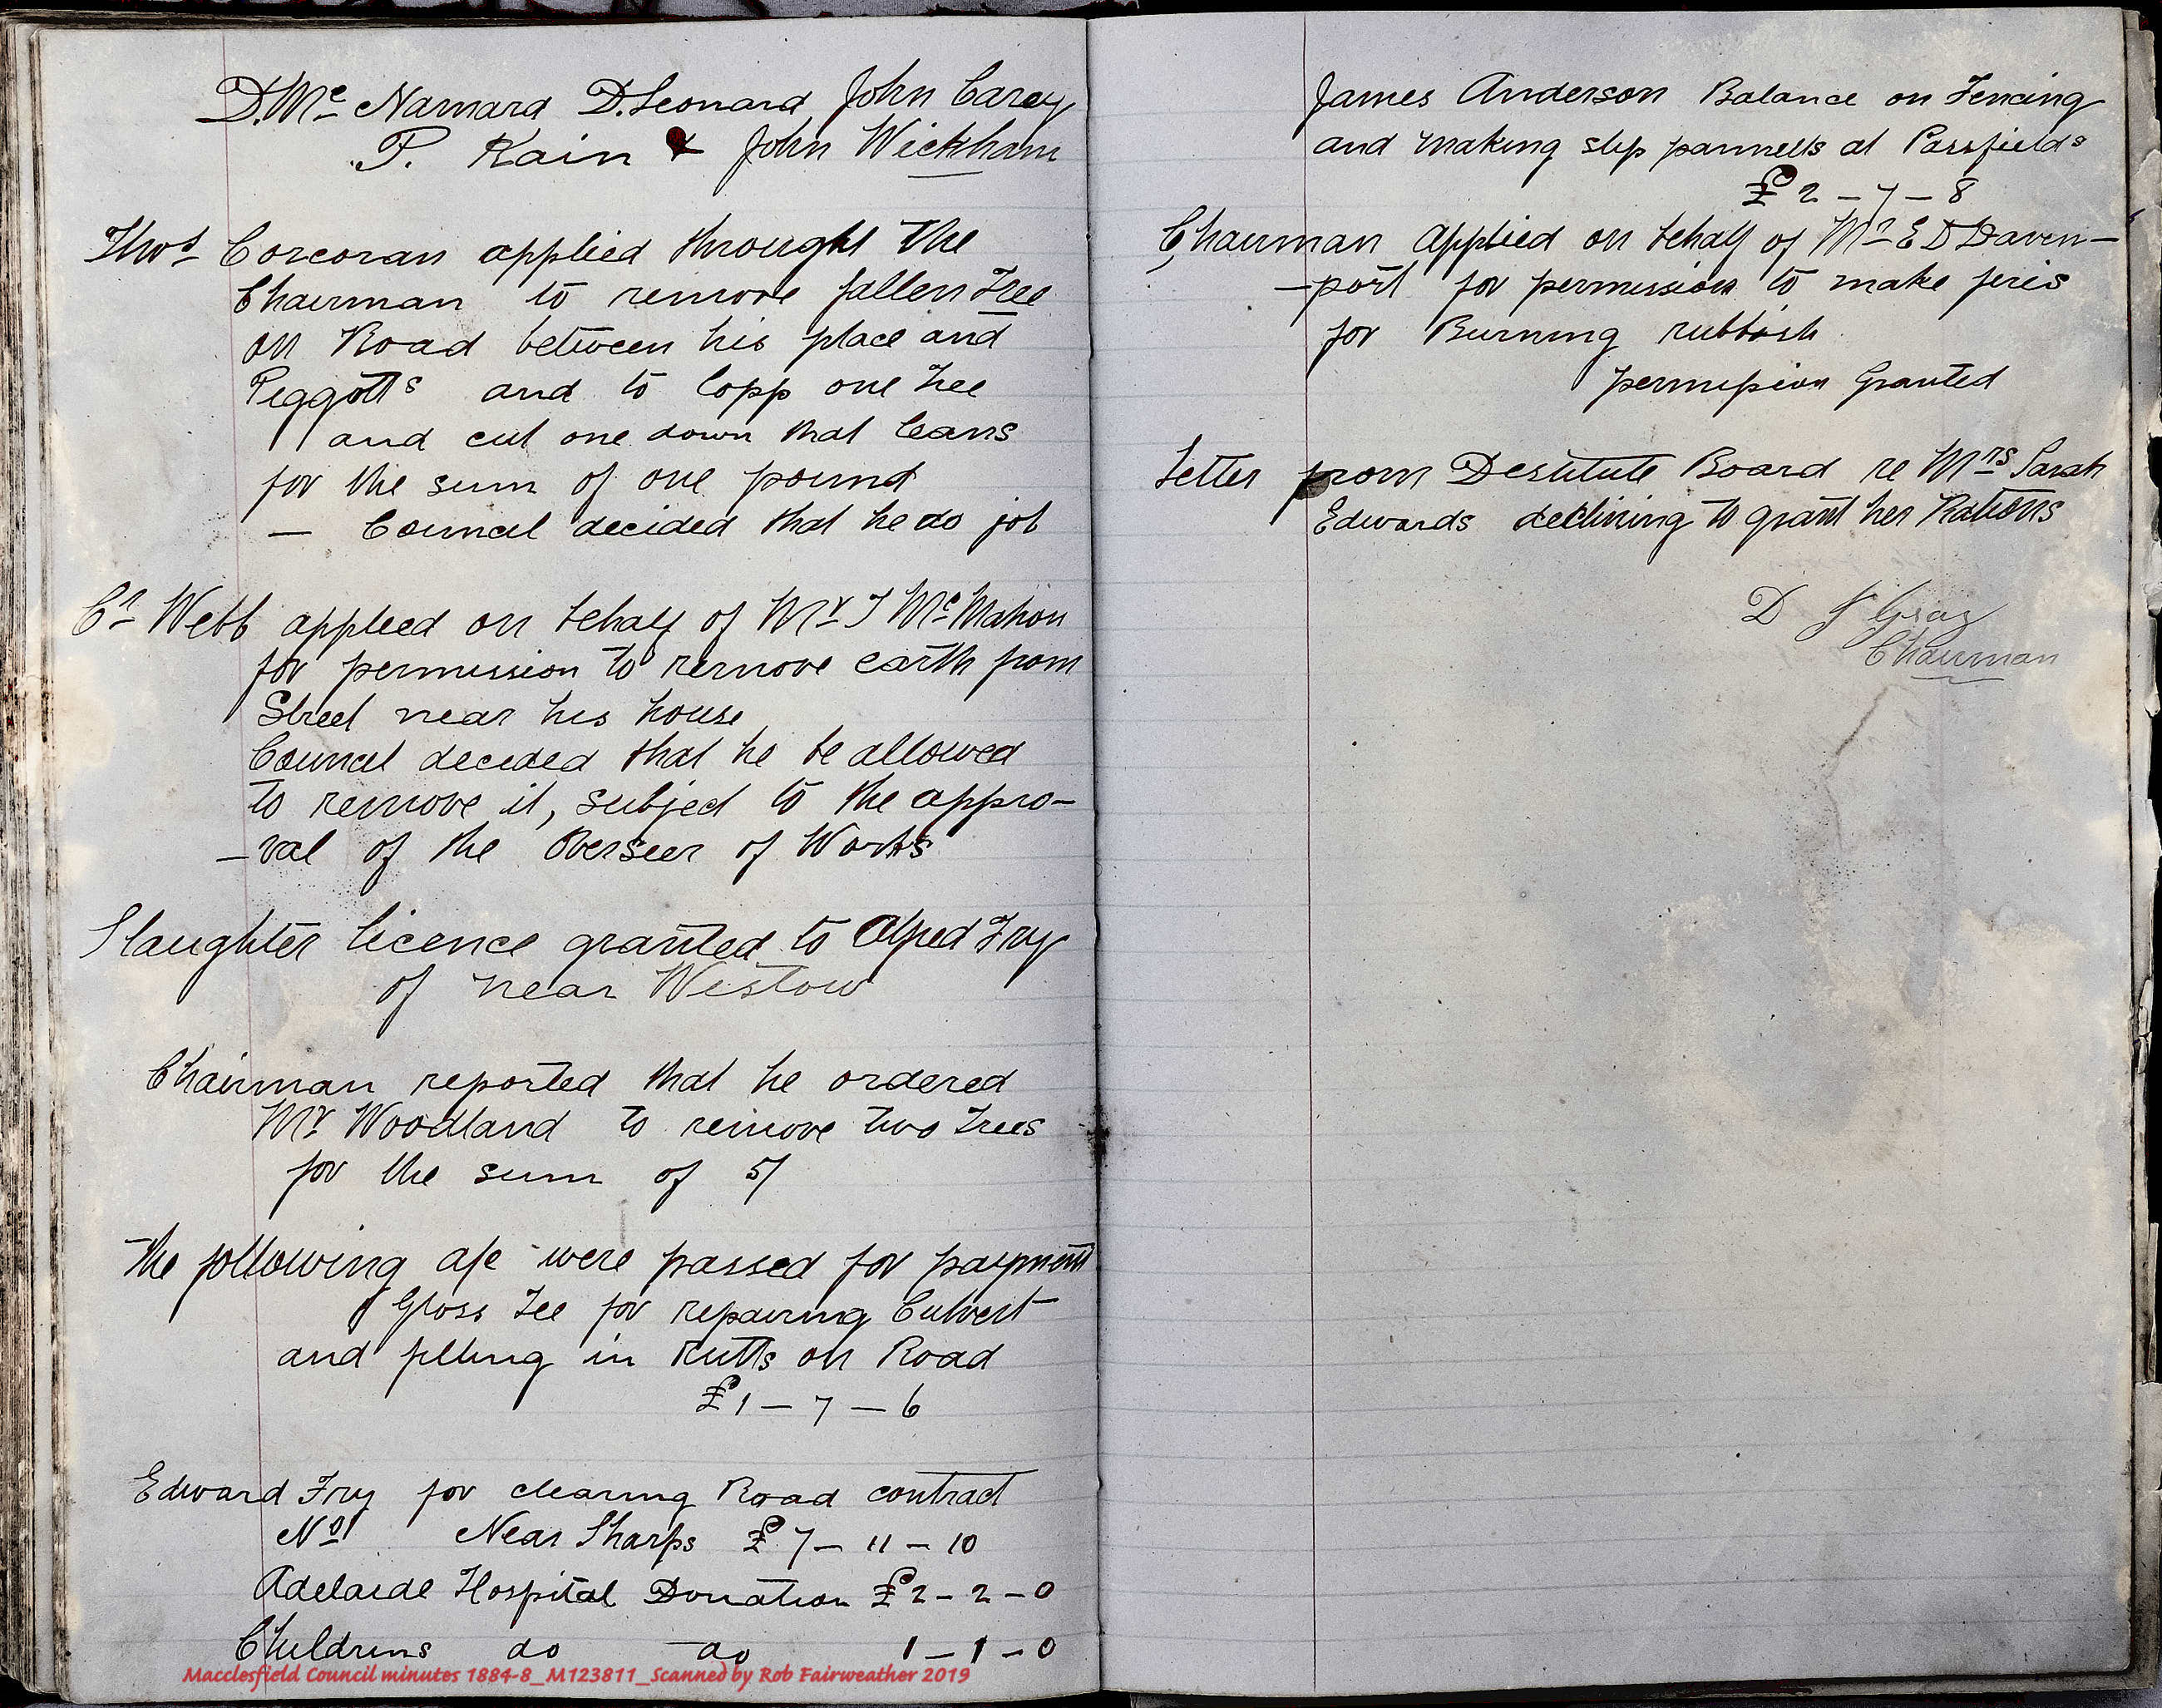 D. Mc Namara D. Leonard John Carey
P. Kain & John Wickham
Thos Corcoran applied throught the
Chairman to remove fallen Tree
on Road between his place and
Peggotts and to lopp one Tree
and cut one down that leans
for the sum of one pound
— Council decided that he do job
Cr Webb applied on behalf of Mr J Mc Mahon
for permission to remove earth from
Street near his house
Council decided that he be allowed
to remove it, subject to the appro-
-val of the Overseer of Works
Slaughter licence granted to Alfred Fry
of near Wistow
Chairman reported that he ordered
Mr Woodland to remove two Trees
for the sum of 5/
The following a/c were passed for payment
Gross Lee for repairing Culvert
and filling in Rutts on Road
£1-7-6
Edward Fry for clearing Road contract
No Near Sharps £7-11-10
Adelaide Hospital Donation £2-2-0
Childrens do do 1-1-0
Macclesfield Council minutes 1884-8_M123811_Scanned by Rob Fairweather 2019
James Anderson Balance on Fencing
and making slip pannells at Passfields
£2-7-8
Chairman applied on behalf of Mr E D Daven-
-port for permission to make firis
for Burning rubbish
permission Granted
Letter from Destitute Board re Mrs Sarah
Edwards declining to grant her Rations
D J Gray
Chairman